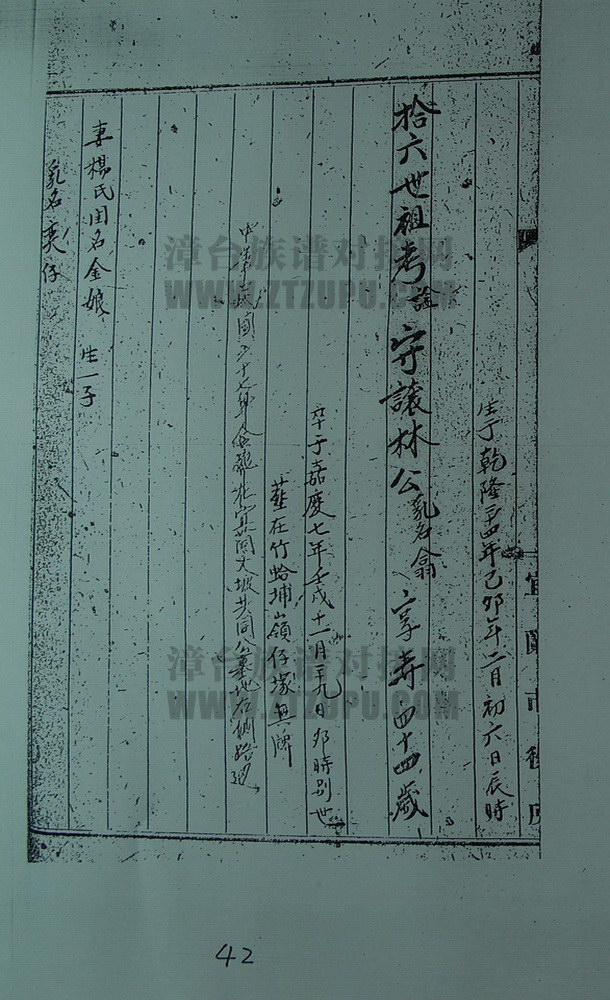 宜蘭市
生于乾隆二十四年己卯年二月初六日辰時
拾六世祖考諡守讓林公乳名翕 享壽四十四歲
卒于嘉慶七年壬戌十一月二十九日卯時別世
葬在竹蛤埔嶺仔塚無牌
中華民國六十七年 同大坡共同公墓 路邊
妻楊氏閨名金娘 生一子
乳名 仔
漳台族谱对接网
WWW.ZTZUPU.COM
漳台族谱对接网
WWW.ZTZUPU.COM
42